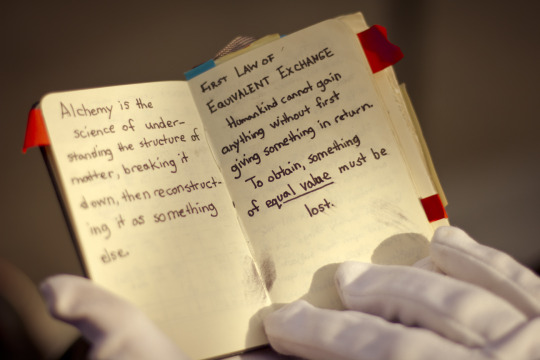 Alchemy is the
science of under-
standing the structure of
matter, breaking it
down, then reconstruct-
ing it as something
else.
FIRST LAW OF
EQUIVALENT EXCHANGE
Humankind cannot gain
anything without first
giving something in return.
To obtain, something
of equal value must be
lost.